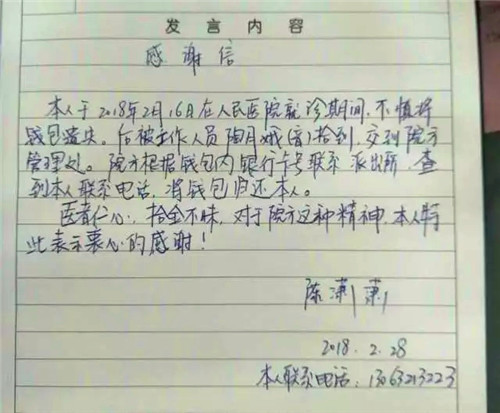 发言内容
感谢信
本人于2018年2月16日在人民医院就诊期间,不慎将
钱包遗失。后被工作人员陶月娥(音)拾到,交到院方
管理处。院方根据钱包内银行卡号联系派出所,查
到本人联系电话,将钱包归还本人。
医者仁心,拾金不昧,对于院方这种精神,本人特
此表示衷心的感谢!
陈
2018.2.28
本人联系电话:13063213223